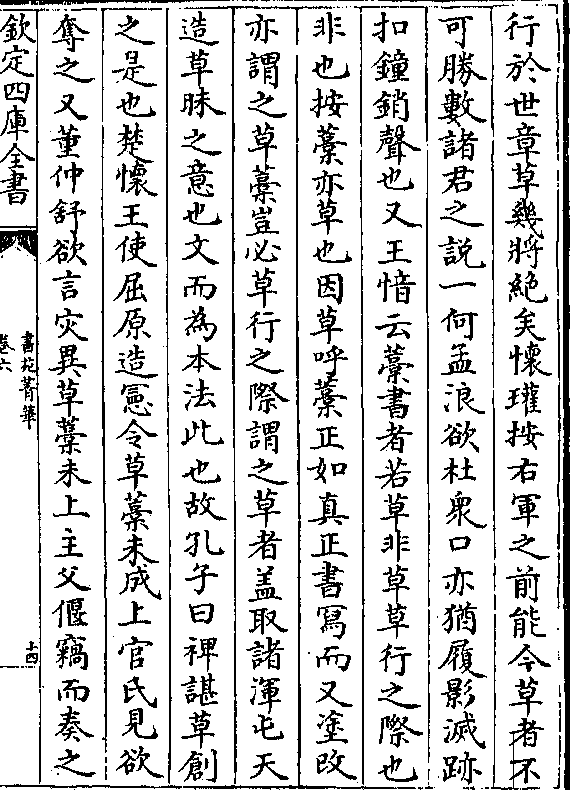 行於世章草幾將絶矣懷瓘按右軍之前能今草者不
可勝數諸君之説一何孟浪欲杜衆口亦猶履影滅跡
扣鐘銷聲也又王愔云藁書者若草非草草行之際也
非也按藁亦草也因草呼藁正如真正書寫而又塗改
亦謂之草藁豈必草行之際謂之草者盖取諸渾屯天
造草昧之意也文而為本法此也故孔子曰禆諶草創
之是也楚懷王使屈原造憲令草藁未成上官氏見欲
奪之又董仲舒欲言灾異草藁未上主父偃竊而奏之
欽定四庫全書
書苑菁華
卷六
十四